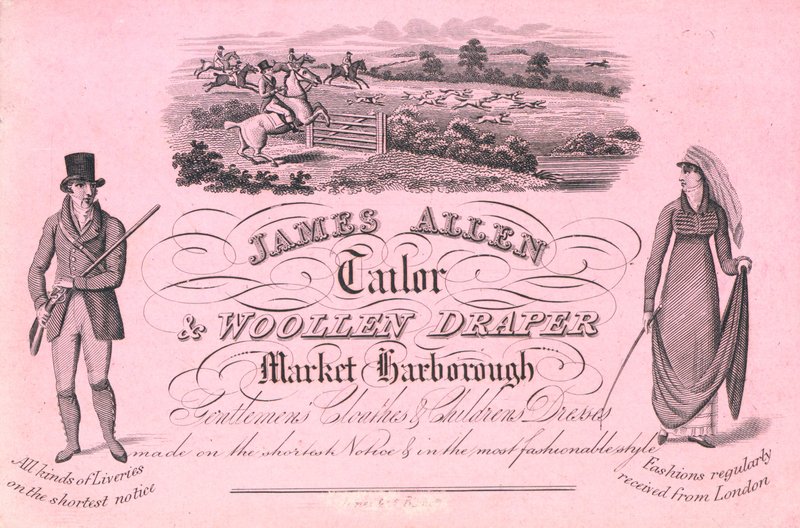 JAMES ALLEN
Tailor
& WOOLLEN DRAPER
Market Harborough
Gentlemens Cloathes & Childrens Dresses
made on the shortest Notice & in the most fashionable style
All kinds of Liveries
on the shortest notice
Fashions regularly
received from London